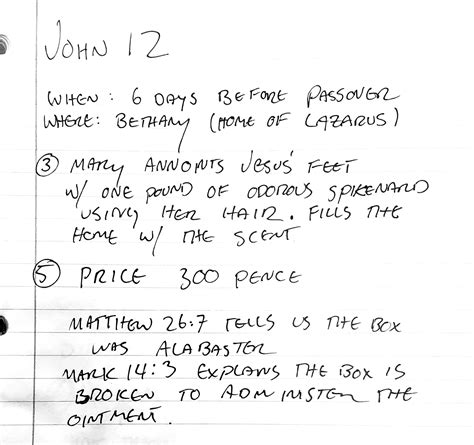 JOHN 12
WHEN: 6 DAYS BEFORE PASSOVER
WHERE: BETHANY (HOME OF LAZARUS)
③ MARY ANNOINTS JESUS' FEET
W/ ONE POUND OF ODOROUS SPIKENARD
USING HER HAIR. FILLS THE
HOME W/ THE SCENT
⑤ PRICE 300 PENCE
MATTHEW 26:7 TELLS US THE BOX
WAS ALABASTER
MARK 14:3 EXPLAINS THE BOX IS
BROKEN TO ADMINISTER THE
OINTMENT.